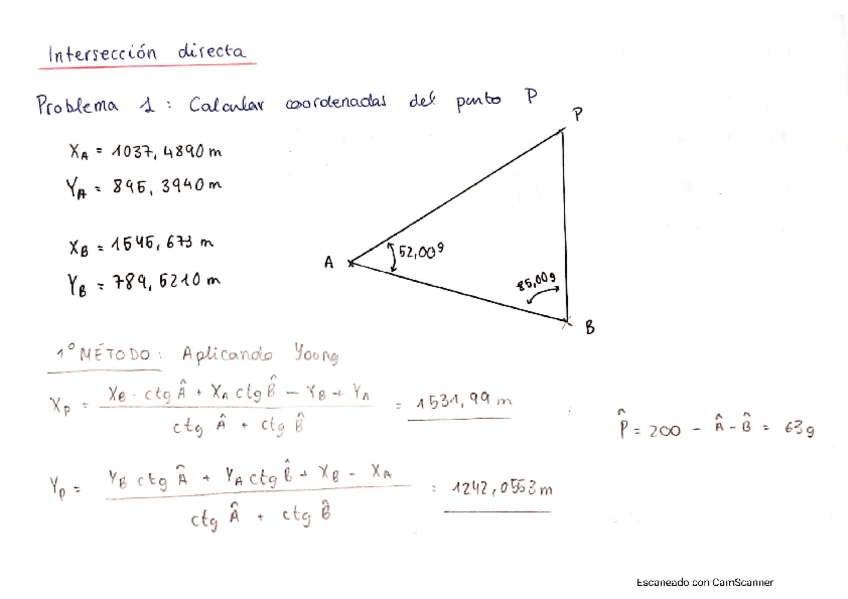 Intersección directa
Problema 1: Calcular coordenadas del punto P
X_A = 1037,4890 m
Y_A = 895,3940 m
X_B = 1545,673 m
Y_B = 789,5210 m
P
A
52,00g
85,00g
B
1º MÉTODO: Aplicando Young
X_P = (X_B · ctg Â + X_A ctg B̂ - Y_B + Y_A) / (ctg Â + ctg B̂) = 1531,99 m
P̂ = 200 - Â - B̂ = 63g
Y_P = (Y_B ctg Â + Y_A ctg B̂ + X_B - X_A) / (ctg Â + ctg B̂) = 1242,0553 m
Escaneado con CamScanner